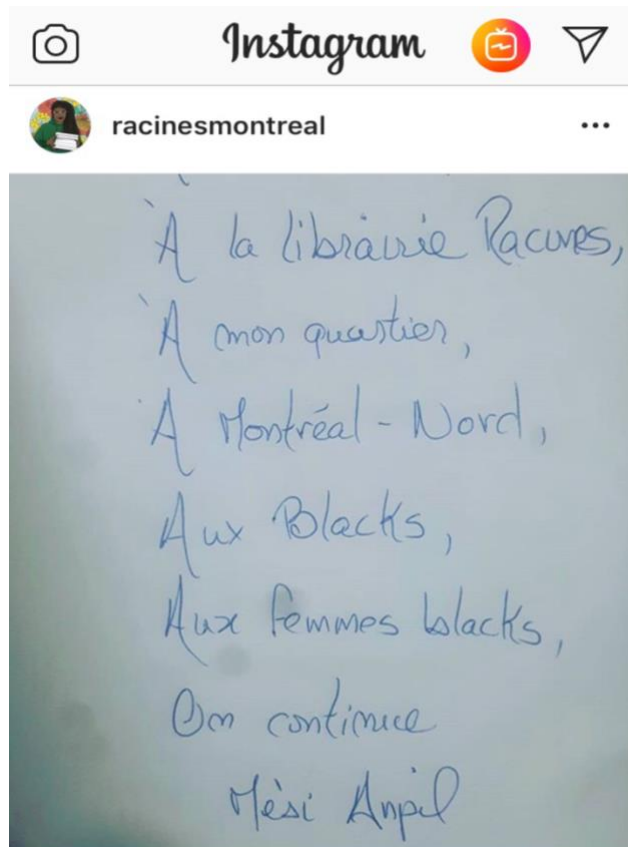 Instagram
racinesmontreal
À la librairie Racines,
À mon quartier,
À Montréal-Nord,
Aux Blacks,
Aux femmes blacks,
On continue
Mèsi Anpil